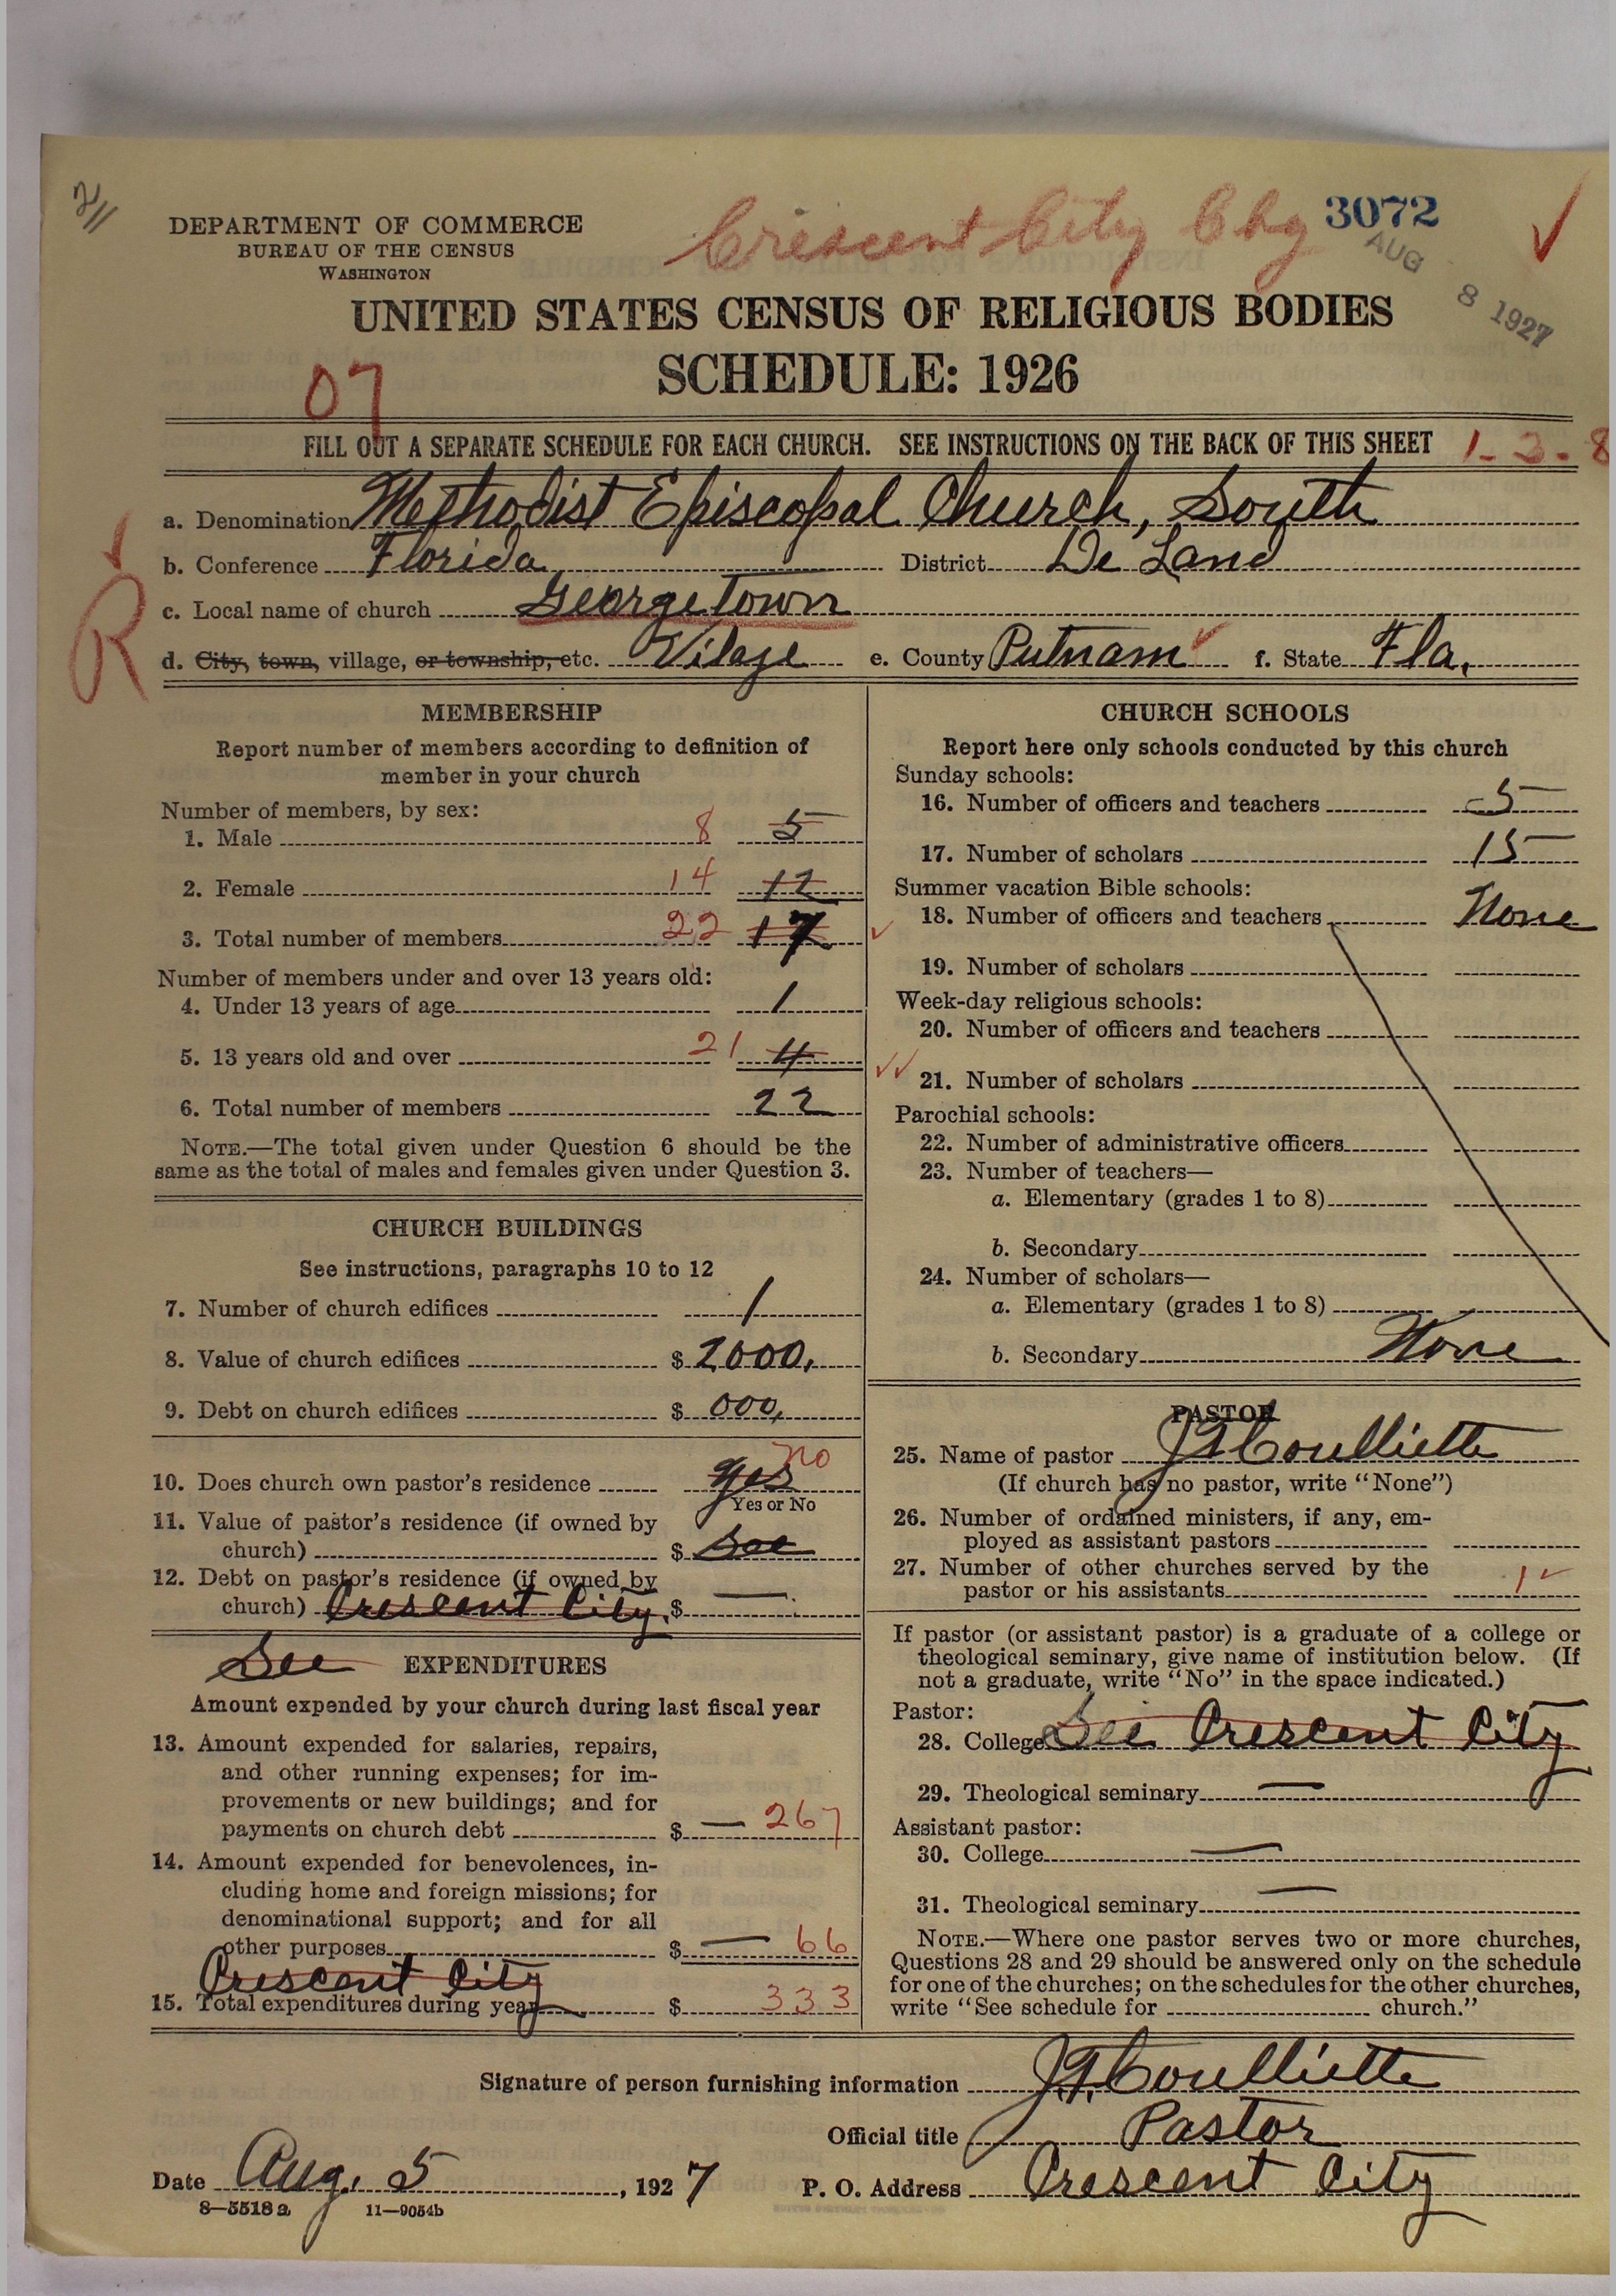 2/11
Crescent City Chg
3072
AUG 8 1927
DEPARTMENT OF COMMERCE
BUREAU OF THE CENSUS
WASHINGTON
UNITED STATES CENSUS OF RELIGIOUS BODIES
SCHEDULE: 1926
07
FILL OUT A SEPARATE SCHEDULE FOR EACH CHURCH. SEE INSTRUCTIONS ON THE BACK OF THIS SHEET 1-3-8
a. Denomination Methodist Episcopal Church, South
b. Conference Florida District De Land
c. Local name of church Georgetown
R
d. City, town, village, or township, etc. Vilage e. County Putnam f. State Fla.
MEMBERSHIP
Report number of members according to definition of
member in your church
Number of members, by sex:
1. Male 8 5
2. Female 14 12
3. Total number of members 22 17
Number of members under and over 13 years old:
4. Under 13 years of age 1
5. 13 years old and over 21 4
6. Total number of members 22
NOTE.—The total given under Question 6 should be the
same as the total of males and females given under Question 3.
CHURCH BUILDINGS
See instructions, paragraphs 10 to 12
7. Number of church edifices 1
8. Value of church edifices $ 2000,
9. Debt on church edifices $ 000,
10. Does church own pastor's residence yes no
Yes or No
11. Value of pastor's residence (if owned by
church) $ See
12. Debt on pastor's residence (if owned by
church) Crescent City. $ —
See EXPENDITURES
Amount expended by your church during last fiscal year
13. Amount expended for salaries, repairs,
and other running expenses; for im-
provements or new buildings; and for
payments on church debt $ — 267
14. Amount expended for benevolences, in-
cluding home and foreign missions; for
denominational support; and for all
other purposes $ — 66
Crescent City
15. Total expenditures during year $ 333
CHURCH SCHOOLS
Report here only schools conducted by this church
Sunday schools:
16. Number of officers and teachers 5
17. Number of scholars 15
Summer vacation Bible schools:
18. Number of officers and teachers None
19. Number of scholars
Week-day religious schools:
20. Number of officers and teachers
21. Number of scholars
Parochial schools:
22. Number of administrative officers
23. Number of teachers—
a. Elementary (grades 1 to 8)
b. Secondary
24. Number of scholars—
a. Elementary (grades 1 to 8)
b. Secondary None
PASTOR
25. Name of pastor J.T. Coulliette
(If church has no pastor, write "None")
26. Number of ordained ministers, if any, em-
ployed as assistant pastors
27. Number of other churches served by the
pastor or his assistants 1
If pastor (or assistant pastor) is a graduate of a college or
theological seminary, give name of institution below. (If
not a graduate, write "No" in the space indicated.)
Pastor:
28. College See Crescent City
29. Theological seminary —
Assistant pastor:
30. College —
31. Theological seminary —
NOTE.—Where one pastor serves two or more churches,
Questions 28 and 29 should be answered only on the schedule
for one of the churches; on the schedules for the other churches,
write "See schedule for church."
Signature of person furnishing information J.T. Coulliette
Official title Pastor
Date Aug. 5, 1927 P. O. Address Crescent City
8—5518 a 11—9054b